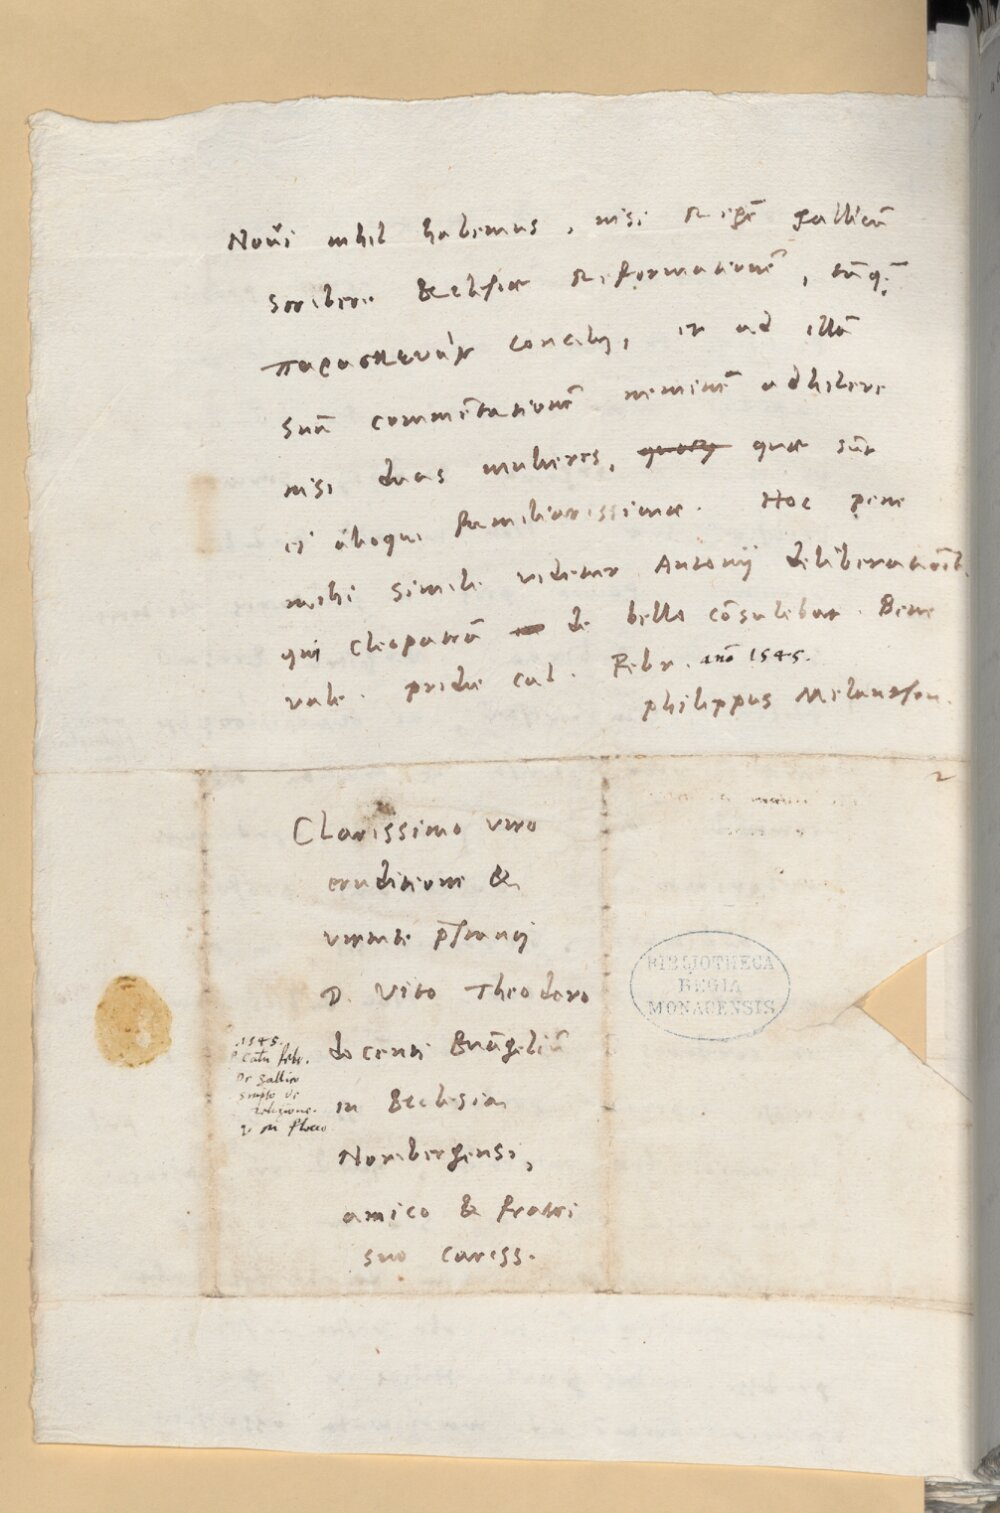 Noui nihil habemus, nisi Regē gallicū
scribere Ecclesiae Reformationē, tāq̃
παρασκευὴν concilij, et ad illā
suā commētationē neminē adhibere
nisi duas mulieres, quae sūt
ei alioqui familiarissimae. Hoc pene
mihi simile videtur Antonij deliberationib.
qui Cleopatrā de bello cōsulebat. Bene
vale. pridie cal. Febr. anno 1545.
philippus Melanthon.
2
Clarissimo viro
eruditione &
virtute p̄stanti
D. Vito Theodoro
docenti Euāgeliū
in Ecclesia
Noribergensi,
amico & fratri
suo cariss.
1545.
febr.
De gallico
scripto de
religione.
BIBLIOTHECA
REGIA
MONACENSIS